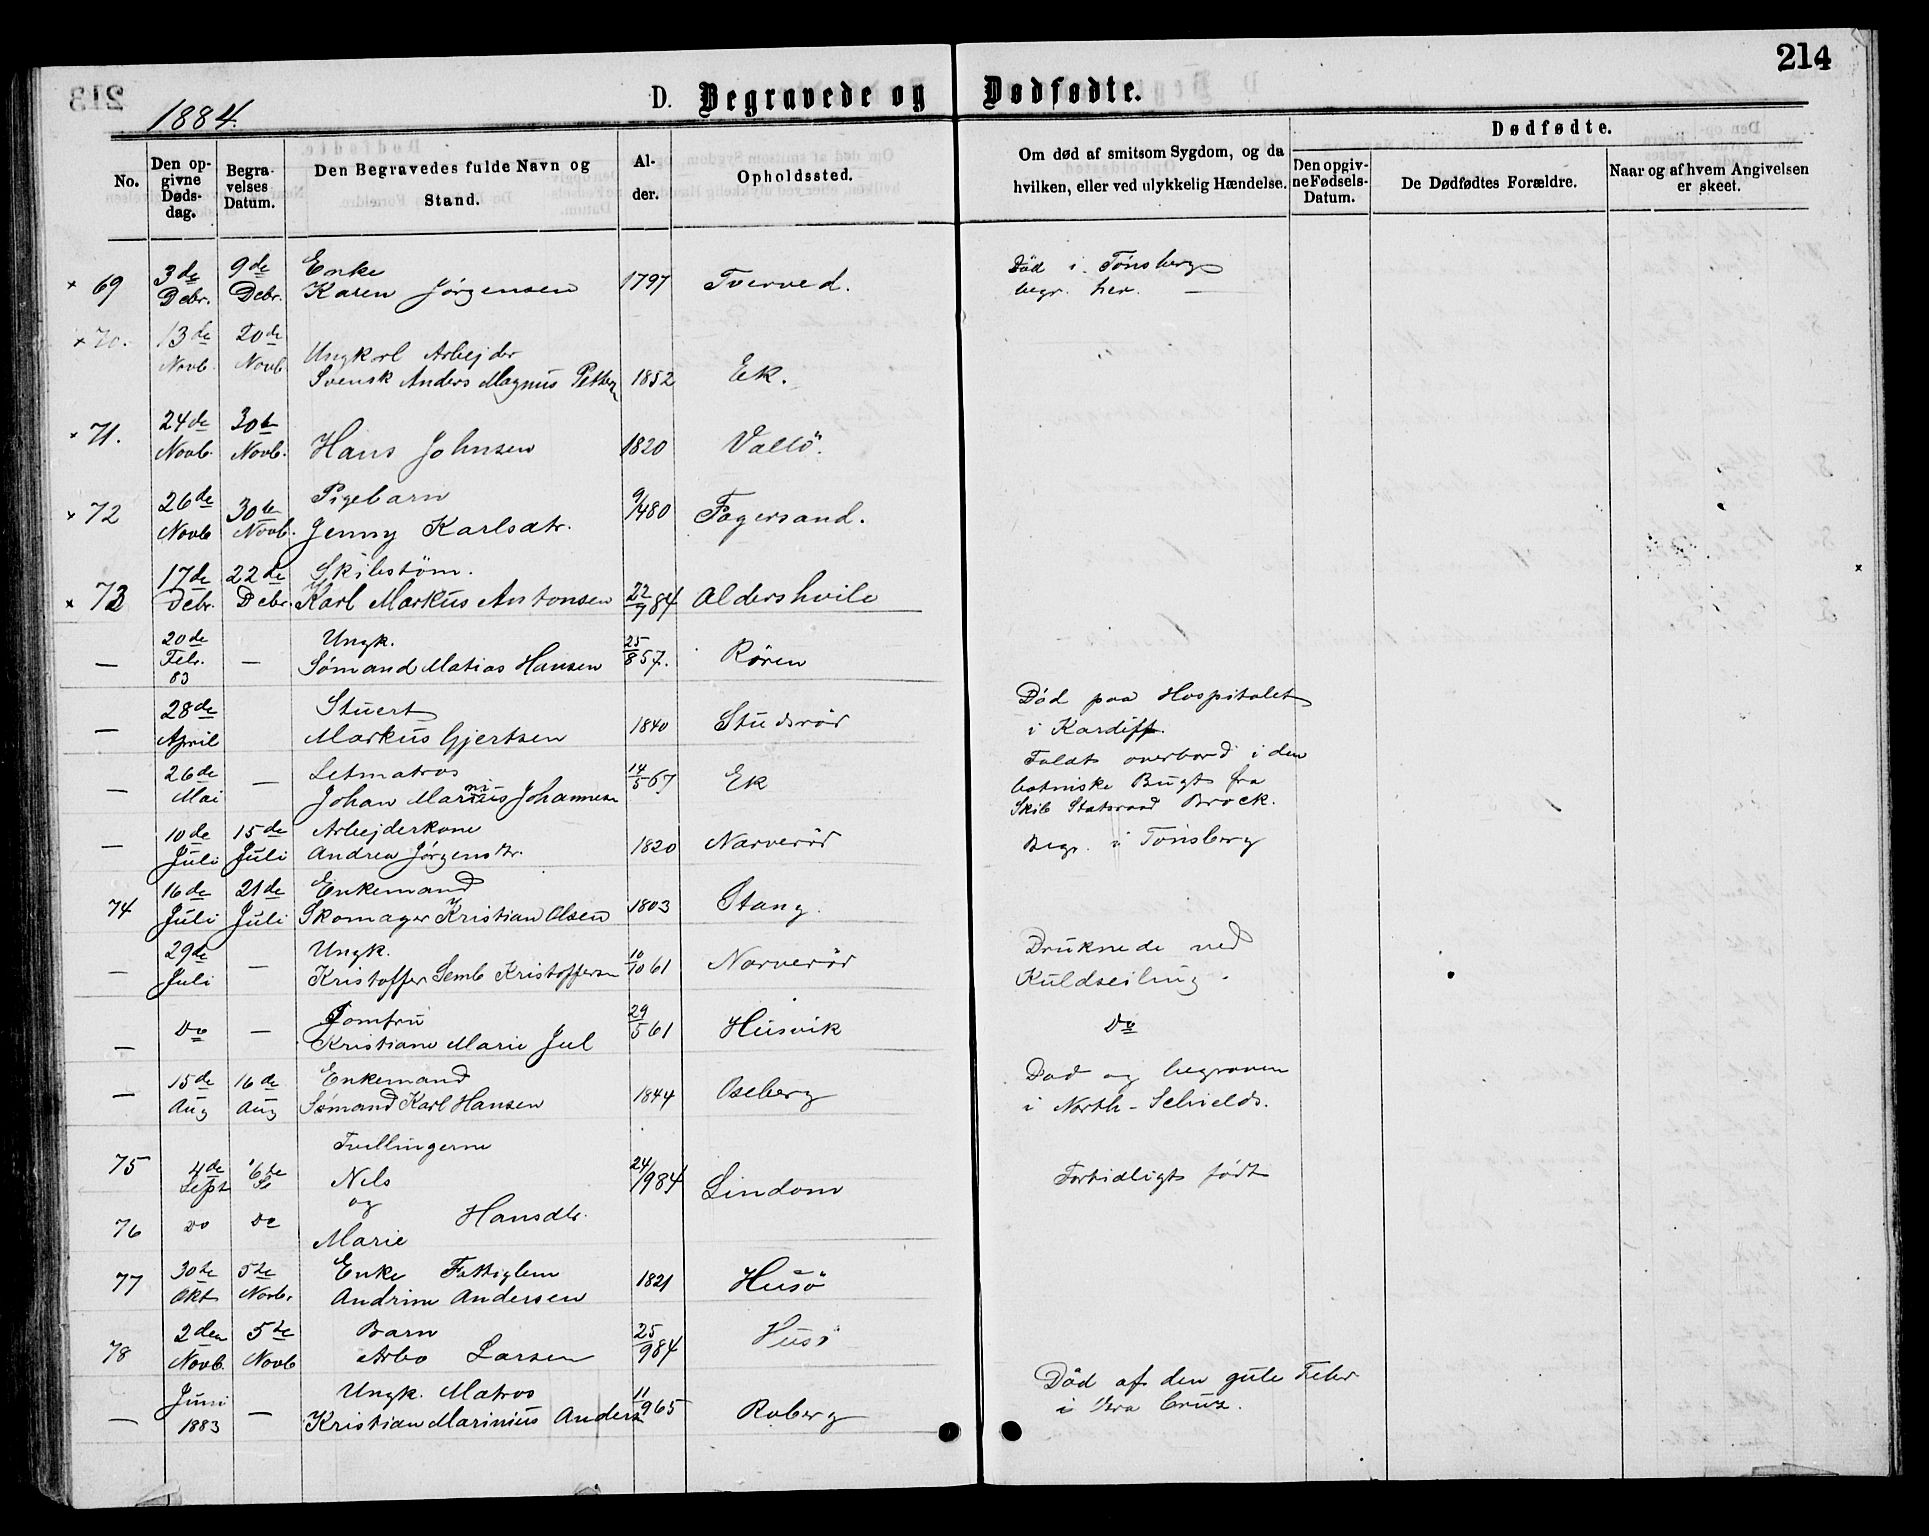 214
1884.
D. Begravede og Dødfødte.
No.
Den opgivne Dødsdag.
Begravelses Datum.
Den Begravedes fulde Navn og Stand.
Alder.
Opholdssted.
Om død af smitsom Sygdom, og da hvilken, eller ved ulykkelig Hændelse.
Dødfødte.
Den opgivne Fødsels-Datum.
De Dødfødtes Forældre.
Naar og af hvem Angivelsen er skeet.
× 69 3de Debr. 9de Debr. Enke Karen Jørgensen 1797 Tverved. Död i Tönsberg begr. her.
× 70. 13de Novb. 20de Novb Ungkarl Arbejder Svensk Anders Magnus 1852 Ek.
× 71. 24de Novb. 30te Novb. Hans Johnsen 1820 Vallö.
× 72 26de Novb 30te Novb. Pigebarn Jenny Karlsdtr. 9/4 80 Fagersand.
× 73 17de Debr. 22de Debr. Skibstøm. Karl Markus Antonsen 22/9 84 Aldershvile
— 20de Febr. 83 — Ungk. Sömand Matias Hansen 25/8 57. Rören
— 28de April Stuert Markus Gjertsen 1840 Studsrød Död paa Hospitalet i Kardiff.
— 26de Mai — Letmatros Johan Johannesen 14/5 67 Ek Faldt overbord i den botniske Bugt fra Skib Statsraad Brock.
— 10de Juli 15de Juli Arbejderkone Andrea Jörgensdtr. 1820 Narveröd Begr. i Tönsberg
74 16de Juli 21de Juli Enkemand Skomager Kristian Olsen 1803 Stang.
— 29de Juli — Ungk. Kristoffer Semb Kristoffersen 10/10 61 Narveröd Druknede ved Kuldseiling.
— Do — Jomfru Kristiane Marie Jul 29/5 61 Húsvik Do
— 15de Aug 16de Aug Enkemand Sömand Karl Hansen 1844 Oseberg Död og begraven i North-Schields.
75 4de Sept 6te Tvillingerne Nils og 24/9 84 Lindom Fortidligt født
76 Do Do Marie Hansdtr.
77 30te Okt 5te Novbr. Enke Fattiglem Andrine Andersen 1821 Husö
78 2den Novb. 5te Novb Barn Arbo Larsen 25/9 84 Husö
— Juni 1883 — Ungk. Matros Kristian Marinius Anders 11/9 65 Roberg Död af den gule Feber i Vera Cruz.